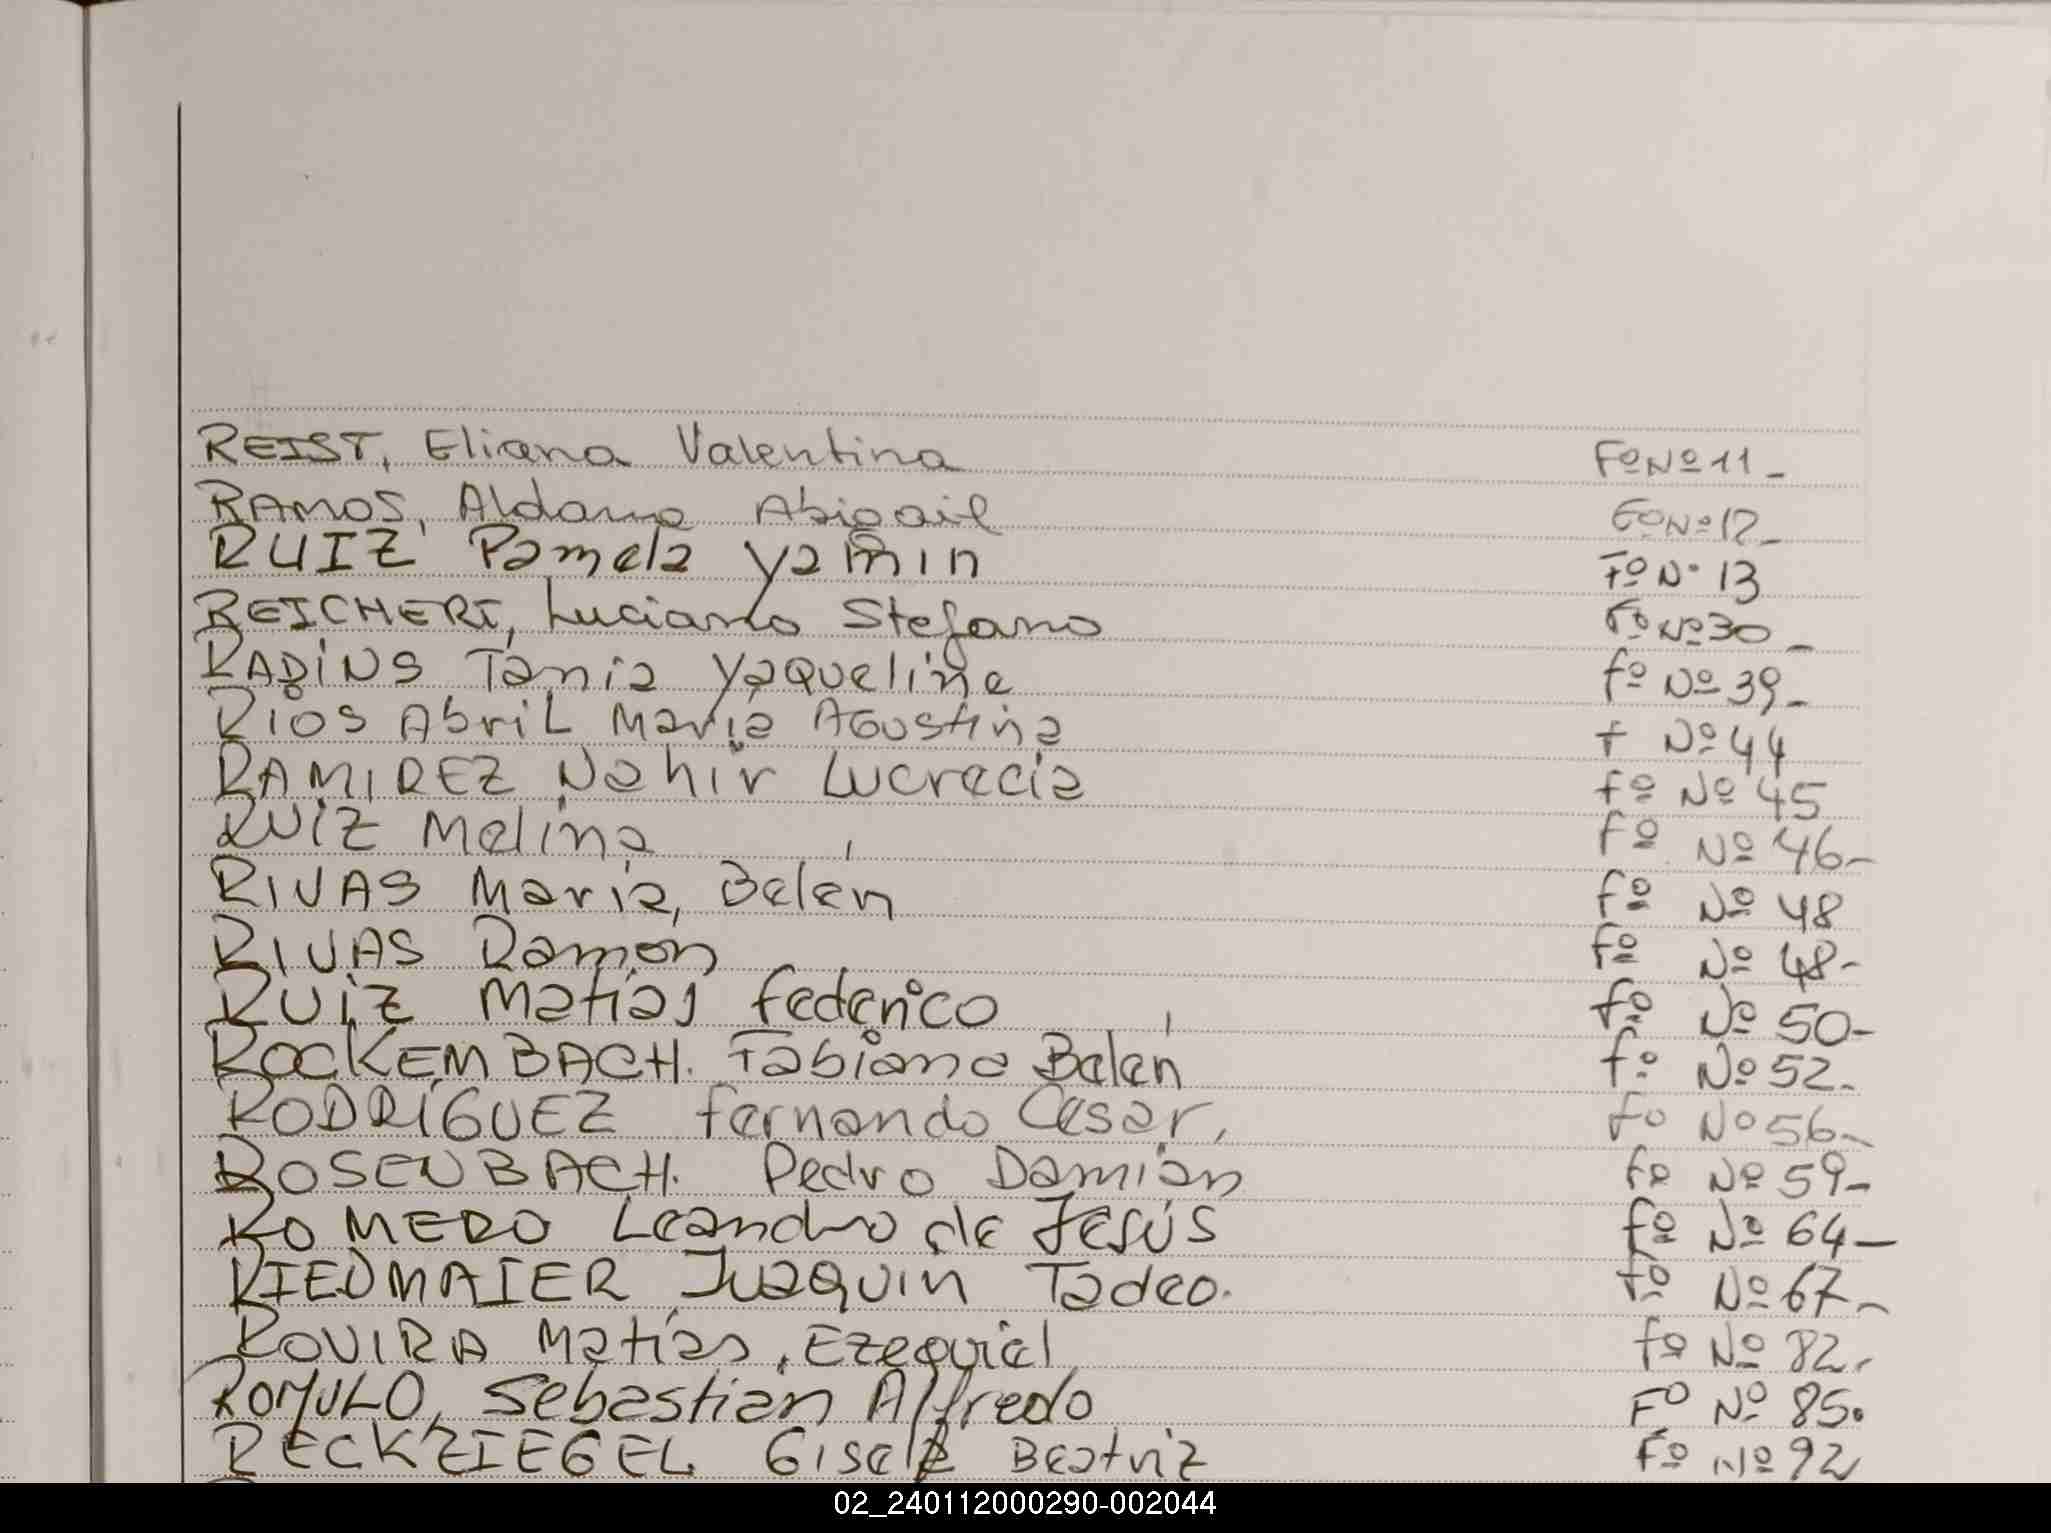 REIST, Eliana Valentina Fº Nº 11 -
RAMOS, Aldana Abigail Fº Nº 12 -
RUIZ Pamela Yamin Fº Nº 13
REICHERT, Luciano Stefano Fº Nº 30 -
RADINS Tania Yaqueline fº Nº 39 -
RIOS Abril María Agustina f Nº 44
RAMIREZ Nahir Lucrecia fº Nº 45
RUIZ Melina fº Nº 46 -
RIVAS María, Belén fº Nº 48
RIVAS Ramón fº Nº 48 -
RUIZ Matías federico fº Nº 50 -
ROCKEMBACH. Fabiana Belén fº Nº 52 -
RODRÍGUEZ fernando Cesar, fº Nº 56 -
ROSENBACH. Pedro Damián fº Nº 59 -
ROMERO Leandro de Jesús fº Nº 64 -
RIEDMAIER Juaquin Tadeo. fº Nº 67 -
ROVIRA Matías, Ezequiel fº Nº 82.
ROMULO, Sebastián Alfredo Fº Nº 85.
RECKZIEGEL Gisela Beatriz Fº Nº 92
02_240112000290-002044